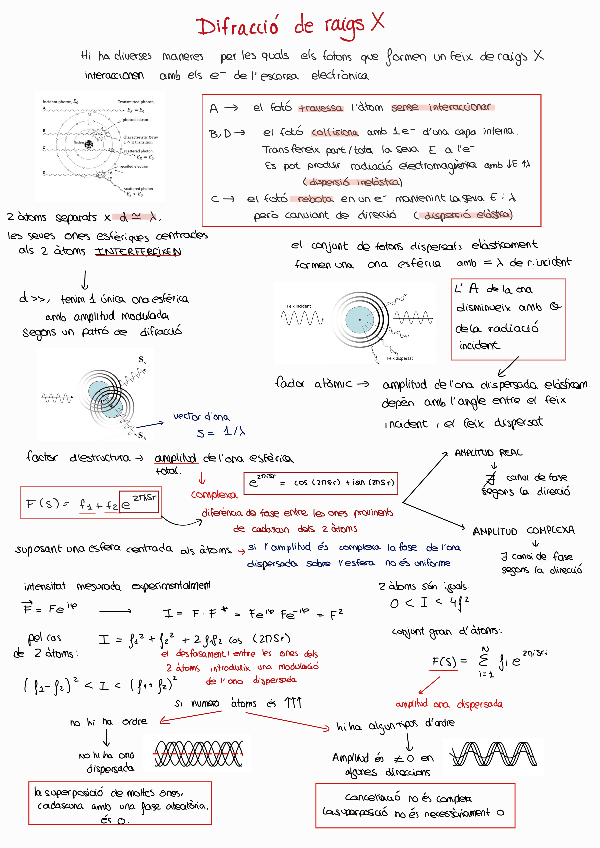 Difracció de raigs X
Hi ha diverses maneres per les quals els fotons que formen un feix de raigs X
interaccionen amb els e⁻ de l'escorça electrònica
A → el fotó travessa l'àtom sense interaccionar
B, D → el fotó col·lisiona amb 1 e⁻ d'una capa interna.
Transfereix part/tota la seva E a l'e⁻
Es pot produir radiació electromagnètica amb ↓E ↑λ
(dispersió inelàstica)
C → el fotó rebota en un e⁻ mantenint la seva E i λ
però canviant de direcció (dispersió elàstica)
2 àtoms separats x d ≃ λ.
les seves ones esfèriques centrades
als 2 àtoms INTERFEREIXEN
d >>, tenim 1 única ona esfèrica
amb amplitud modulada
segons un patró de difracció
el conjunt de fotons dispersats elàsticament
formen una ona esfèrica amb = λ de r. incident
Feix incident
Feix dispersat
L' A de la ona
disminueix amb θ
de la radiació
incident
factor atòmic → amplitud de l'ona dispersada elàsticam.
depèn amb l'angle entre el feix
incident i el feix dispersat
vector d'ona
S = 1/λ
factor d'estructura → amplitud de l'ona esfèrica
total.
complexa
F(s) = f₁ + f₂ e^{2πiSr}
e^{2πiSr} = cos (2πSr) + i sin (2πSr)
diferència de fase entre les ones provinents
de cadascun dels 2 àtoms
AMPLITUD REAL
∄ canvi de fase
segons la direcció
AMPLITUD COMPLEXA
∃ canvi de fase
segons la direcció
suposant una esfera centrada als àtoms → si l'amplitud és complexa la fase de l'ona
dispersada sobre l'esfera no és uniforme
intensitat mesurada experimentalment
F = Fe^{iφ} → I = F · F* = Fe^{iφ} Fe^{-iφ} = F²
2 àtoms són iguals
0 < I < 4f²
pel cas
de 2 àtoms:
I = f₁² + f₂² + 2f₁f₂ cos (2πSr)
el desfasament entre les ones dels
2 àtoms introdueix una modulació
de l'ona dispersada
(f₁-f₂)² < I < (f₁+f₂)²
conjunt gran d'àtoms:
F(s) = Σ_{i=1}^{N} f_i e^{2πiSri}
amplitud ona dispersada
si numero àtoms és ↑↑↑
no hi ha ordre
no hi ha ona
dispersada
hi ha algun tipus d'ordre
Amplitud és ≠ 0 en
algunes direccions
la superposició de moltes ones,
cadascuna amb una fase aleatòria,
és 0.
Cancel·lació no és completa
La superposició no és necessàriament 0